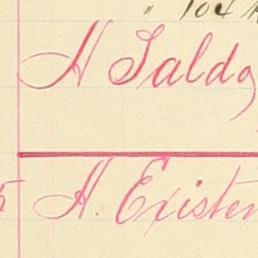 " 104
A Saldo
5 A. Existen